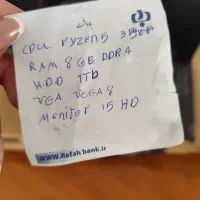 CPU RYZEN5 3500
RAM 8 GB DDR4
HDD 1TB
VGA VEGA 8
Monitor 15 HD
www.Refah bank.ir